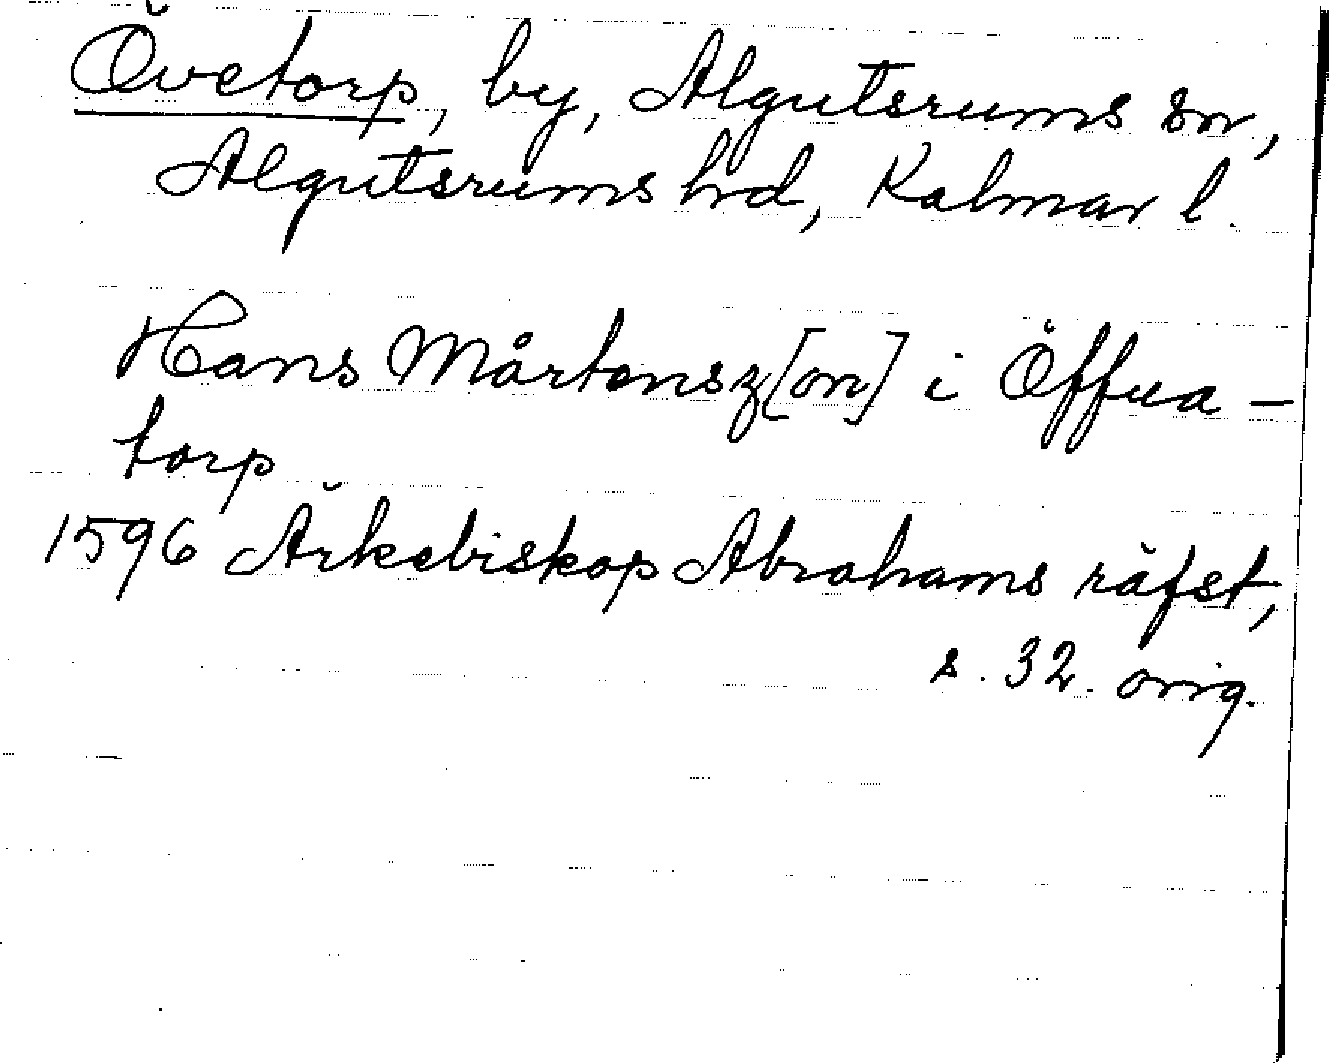 Övetorp, by, Algutsrums sn,
Algutsrums hrd, Kalmar l.
Hans Mårtensz[on] i Öffua-
torp
1596 Ärkebiskop Abrahams räfst,
s. 32. orig.